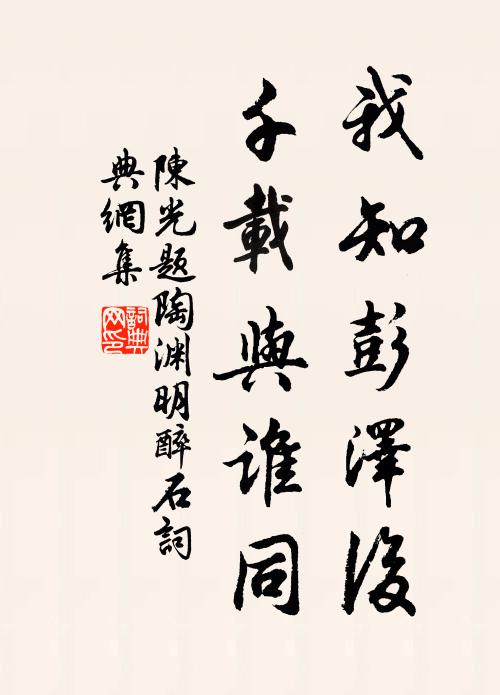 我知彭澤後
千載與誰同
陳光题陶渊明醉石詞
典網集
詞典网印